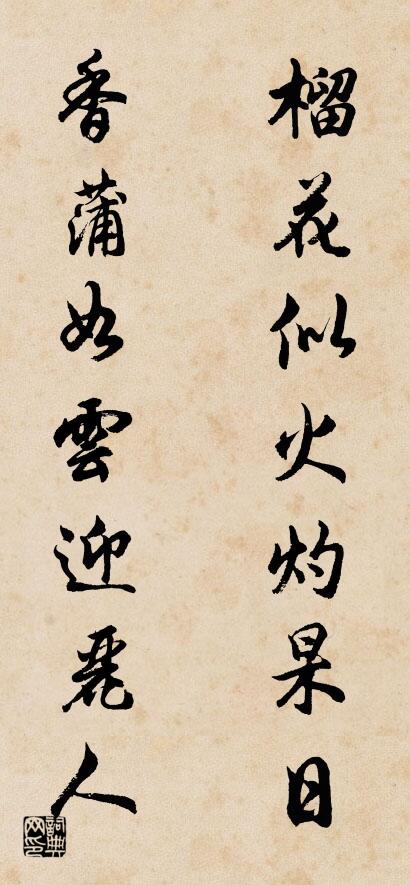 榴花似火灼杲日
香蒲如雲迎麗人
詞典网印